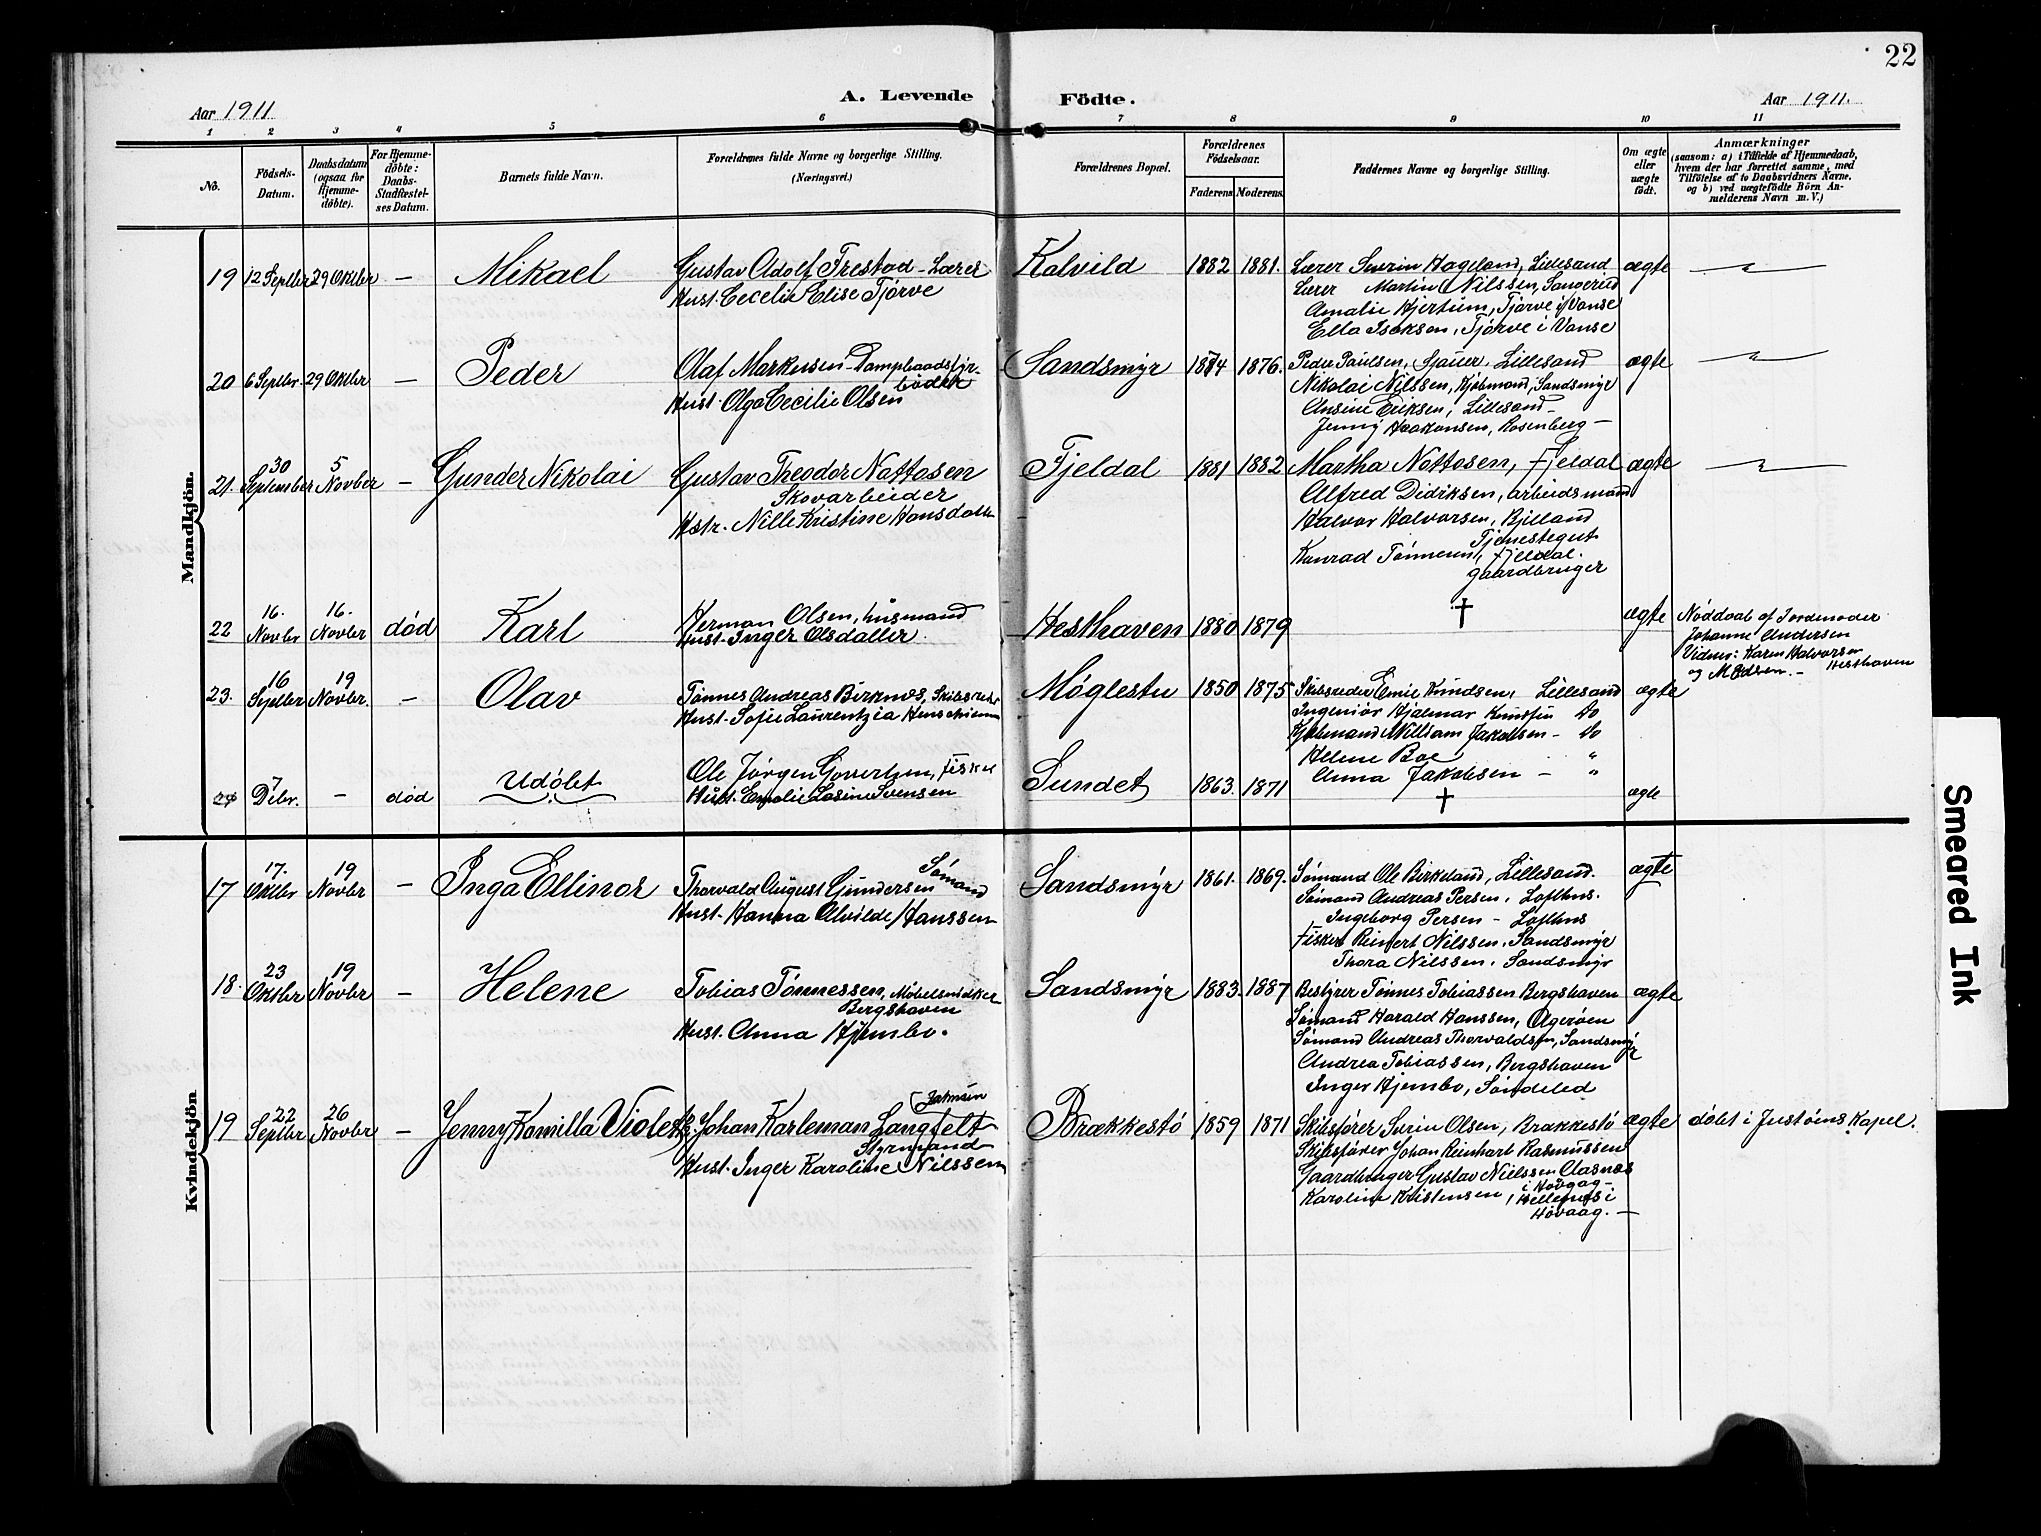 22
A. Levende Födte.
Aar 1911
Aar 1911.
1 2 3 4 5 6 7 8 9 10 11
No.
Födsels-
Datum.
Daabsdatum
(ogsaa for
Hjemme-
döbte).
For Hjemme-
döbte:
Daabs-
Stadfæstel-
ses Datum.
Barnets fulde Navn.
Forældrenes fulde Navne og borgerlige Stilling.
(Næringsvei.)
Forældrenes Bopæl.
Forældrenes
Födselsaar.
Faderens
Moderens
Faddernes Navne og borgerlige Stilling.
Om ægte
eller
uægte
födt.
Anmærkninger
(saasom: a) i Tilfælde af Hjemmedaab,
hvem der har forrettet samme, med
Tilföielse af to Daabsvidners Navne,
og b) ved uægtefödte Börn An-
melderens Navn m. V.)
Mandkjön.
19 12 Septbr 29 Oktbr – Mikael
Gustav Adolf Frestad - Lærer
Hust. Cecelie Elise Tjørve
Kalvild 1882 1881.
Lærer Severin Hageland, Lillesand
Lærer Martin Nilssen, Sangereid
Amalie Hjertum, Tjørve i Vanse
Ella Isaksen, Tjørve i Vanse
ægte
20 6 Septbr. 29 Oktbr – Peder
Olaf Markusen - Dampbaadsfyr-
bøder
Hust. Olga Cecilie Olsen
Sandsmyr 1874 1876.
Peder Paulsen, Lillesand
Nikolai Nilssen, Kjøbmand, Sandsmyr
Ansine Eriksen, Lillesand –
Jenny Haakonsen, Rosenberg –
ægte
21. 30 September 5 Novber – Gunder Nikolai
Gustav Theodor Nottosen
Skovarbeider
Hstr. Nille Kristine Hansdatter
Fjeldal 1881 1882
Martha Nottosen, Fjeldal
Alfred Didriksen, arbeidsmand
Halvor Halvorsen, Bjelland
Tjenestegut
Konrad Tønnesen, Fjeldal.
gaardbruger
ægte
22 16. Novbr 16. Novbr død Karl
Herman Olsen, husmand
Hust. Inger Olsdatter.
Hesthaven 1880 1879
† ægte
Nøddaab af Jordemoder
Johanne Andersen
Vidner: Karen Halvorsen
og M Olsen. – Hesthaven
23. 16 Septbr 19 Novbr. – Olav
Tønnes Andreas Birknes, Skibsreder
Hust. Sofie Laurentzia
Møglestu 1850 1875
Skibsreder Emil Knudsen, Lillesand
Ingeniør Hjalmar Knudsen do
Kjøbmand William Jakobsen – do
Helene Boe "
Anna Jakobsen – "
ægte
24 7 Debr. – død Udøbt
Ole Jørgen Govertsen, Fisker
Hust. Emilie Losine Svensen
Sundet 1863. 1871
† ægte
Kvindekjön
17 17. Oktbr 19 Novbr – Inga Ellinor
Sømand
Thorvald August Gundersen
Hust. Hanna Alvilde Hanssen
Sandsmyr 1861. 1869.
Sømand Ole Birkeland, Lillesand.
Sømand Andreas Persen, Lofthus.
Ingeborg Persen – Lofthus
Fisker Reinert Nilssen, Sandsmyr
Thora Nilssen, Sandsmyr
ægte
18. 23 Oktbr 19 Novbr – Helene
Tobias Tønnessen, Møbelsnedker
Bergshaven
Hust. Anna Hjembo.
Sandsmyr 1883. 1887
Bestyrer Tønnes Tobiassen Bergshaven
Sømand Harald Hanssen, Aagerøen
Sømand Andreas Thorvaldsen, Sandsmyr
Andrea Tobiassen, Bergshaven
Inger Hjembo, Søndeled
ægte
19 22 Septbr 26 Novbr – Jenny Kamilla Violetta
Johan Karleman Langfelt
Styrmand
Hust. Inger Karoline Nilssen
Brækkestø 1859 1871
Skibsfører Severin Olsen, Brækkestø
Skibsfører Johan Reinhart Rasmussen
Gaardbruger Gustav Nielssen Aasnæs
i Høvaag –
Karoline Kristensen, Hellenes i
Høvaag. –
ægte døbt i Justøens Kapel.
Smeared Ink